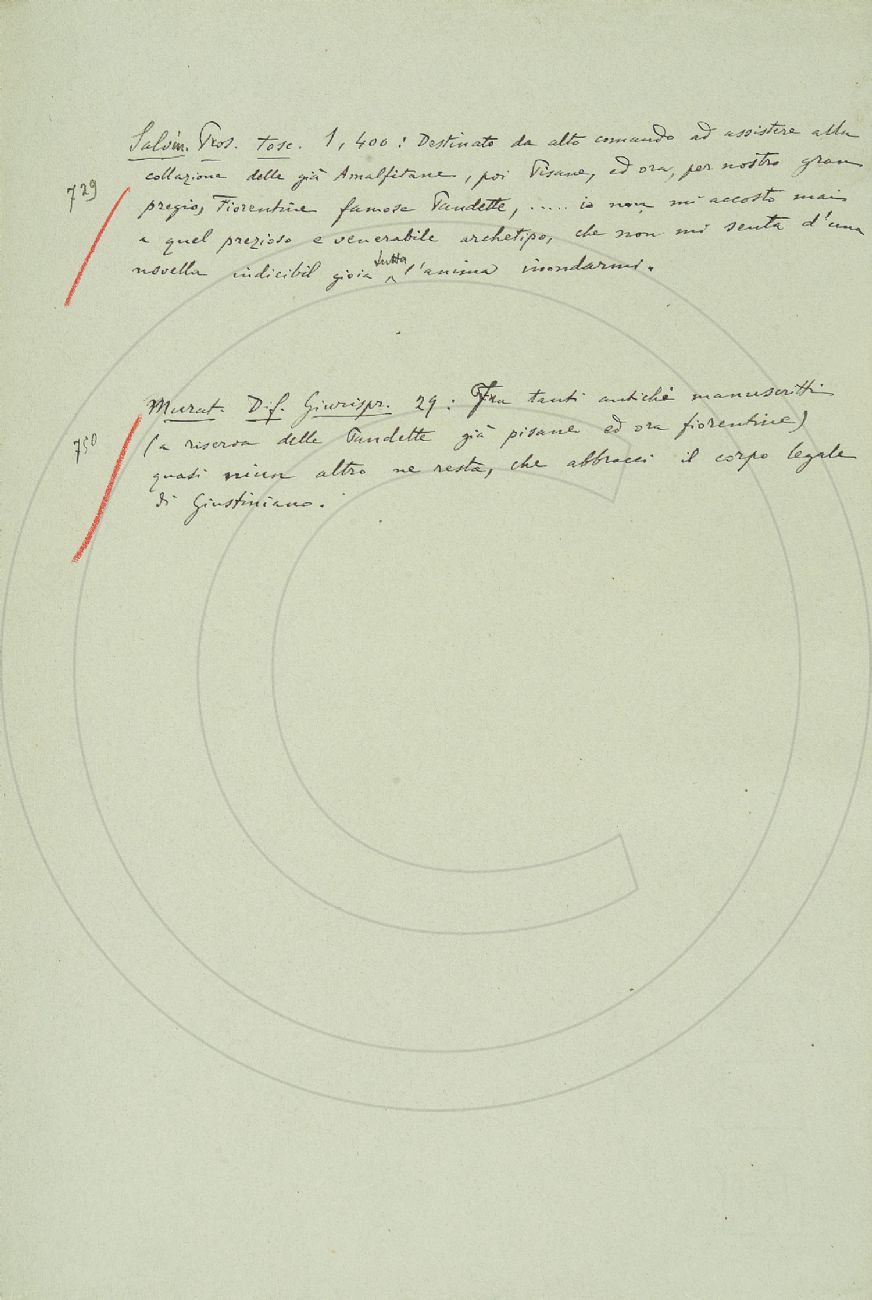 Salvin. Pros. tosc. 1, 400: Destinato da alto comando ad assistere alla
729
collazione delle già Amalfitane, poi Pisane, ed ora, per nostro gran
pregio, Fiorentine famose Pandette, ..... io non mi accosto mai
a quel prezioso e venerabile archetipo, che non mi senta d'una
novella indicibil gioia tutta l'anima inondarmi.
Murat. Dif. Giurispr. 29: Fra tanti antichi manuscritti
750
(a riserva delle Pandette già pisane ed ora fiorentine)
quasi niun altro ne resta, che abbracci il corpo legale
di Giustiniano.